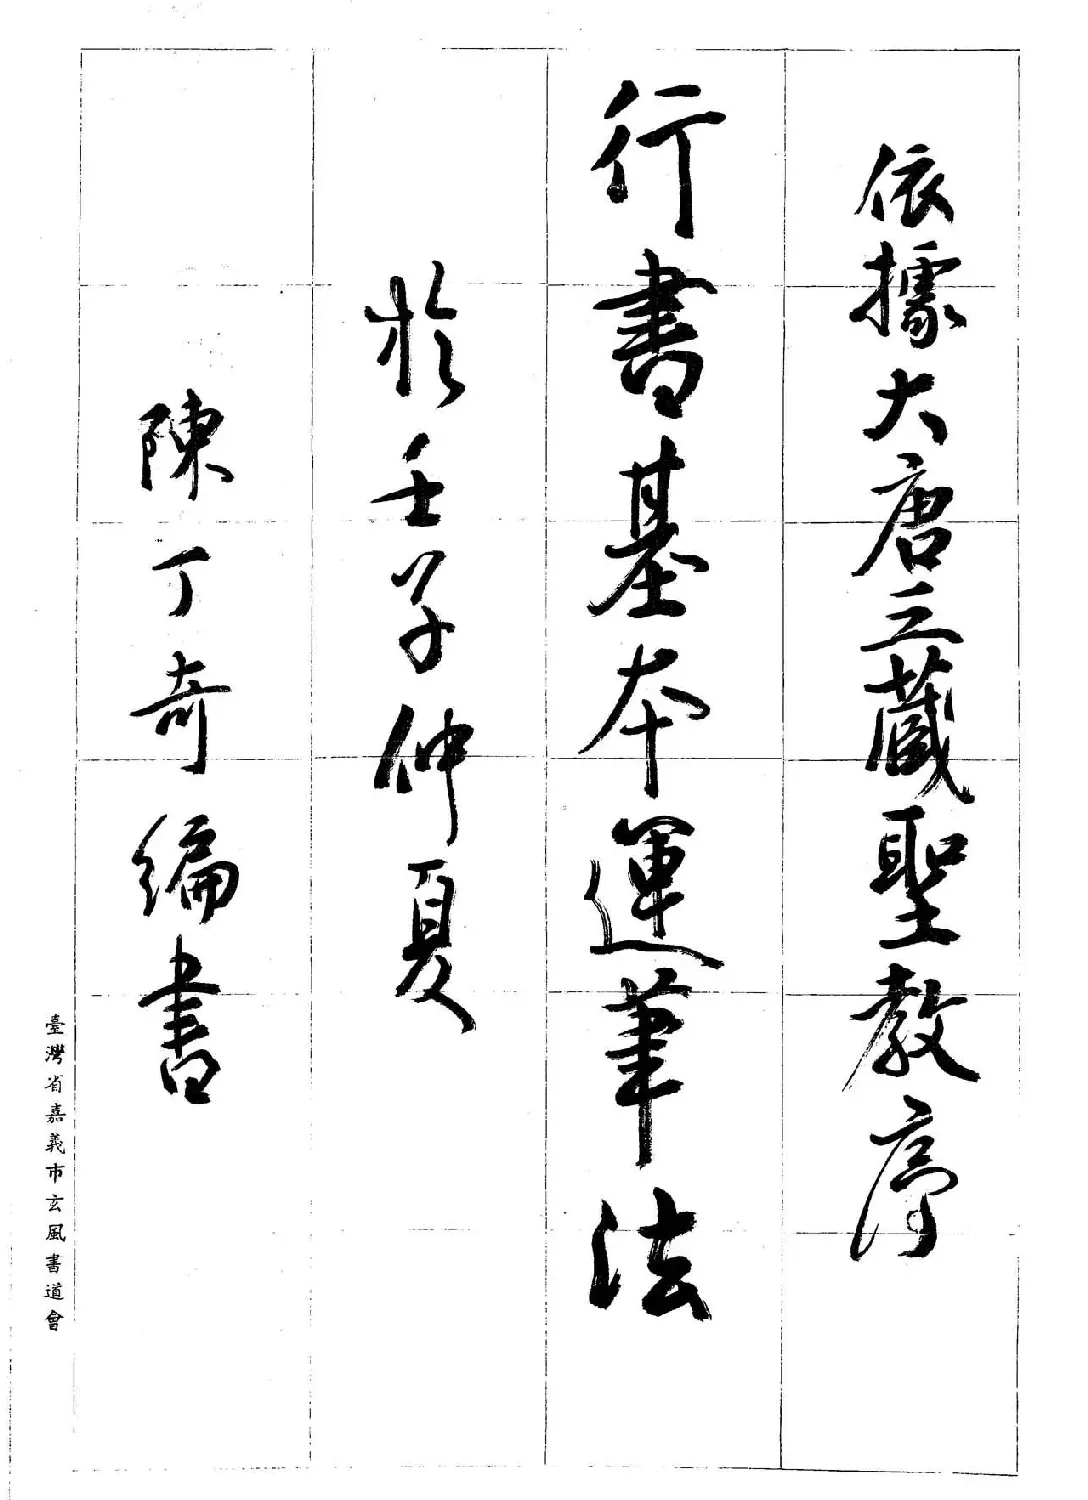 依據大唐三藏聖教序
行書基本運筆法
於壬子仲夏
陳丁奇編書
臺灣省嘉義市玄風書道會